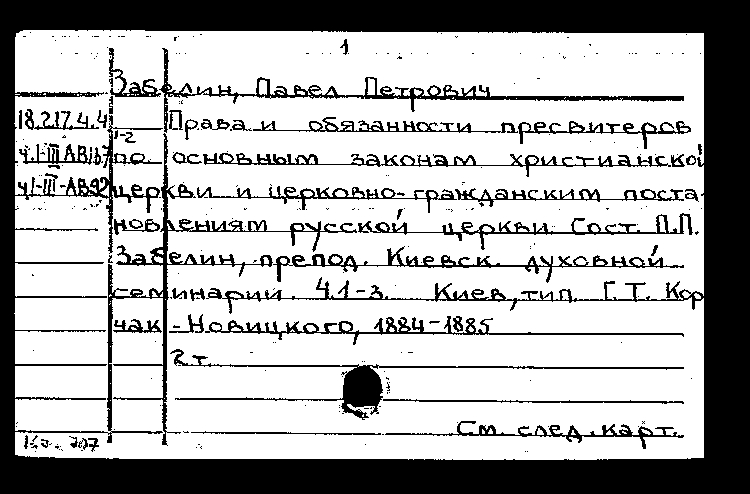 1
Забелин, Павел Петрович
18.217.4.4 Права и обязанности пресвитеров
1-2
ч.I-III АВ167 по основным законам христианской
ч.I-III-АВ92 церкви и церковно-гражданским поста-
новлениям русской церкви. Сост. П.П.
Забелин, препод. Киевск. духовной
семинарии. Ч.1-3. Киев, тип. Г.Т. Кор
чак-Новицкого, 1884-1885
2 т.
См. след. карт.